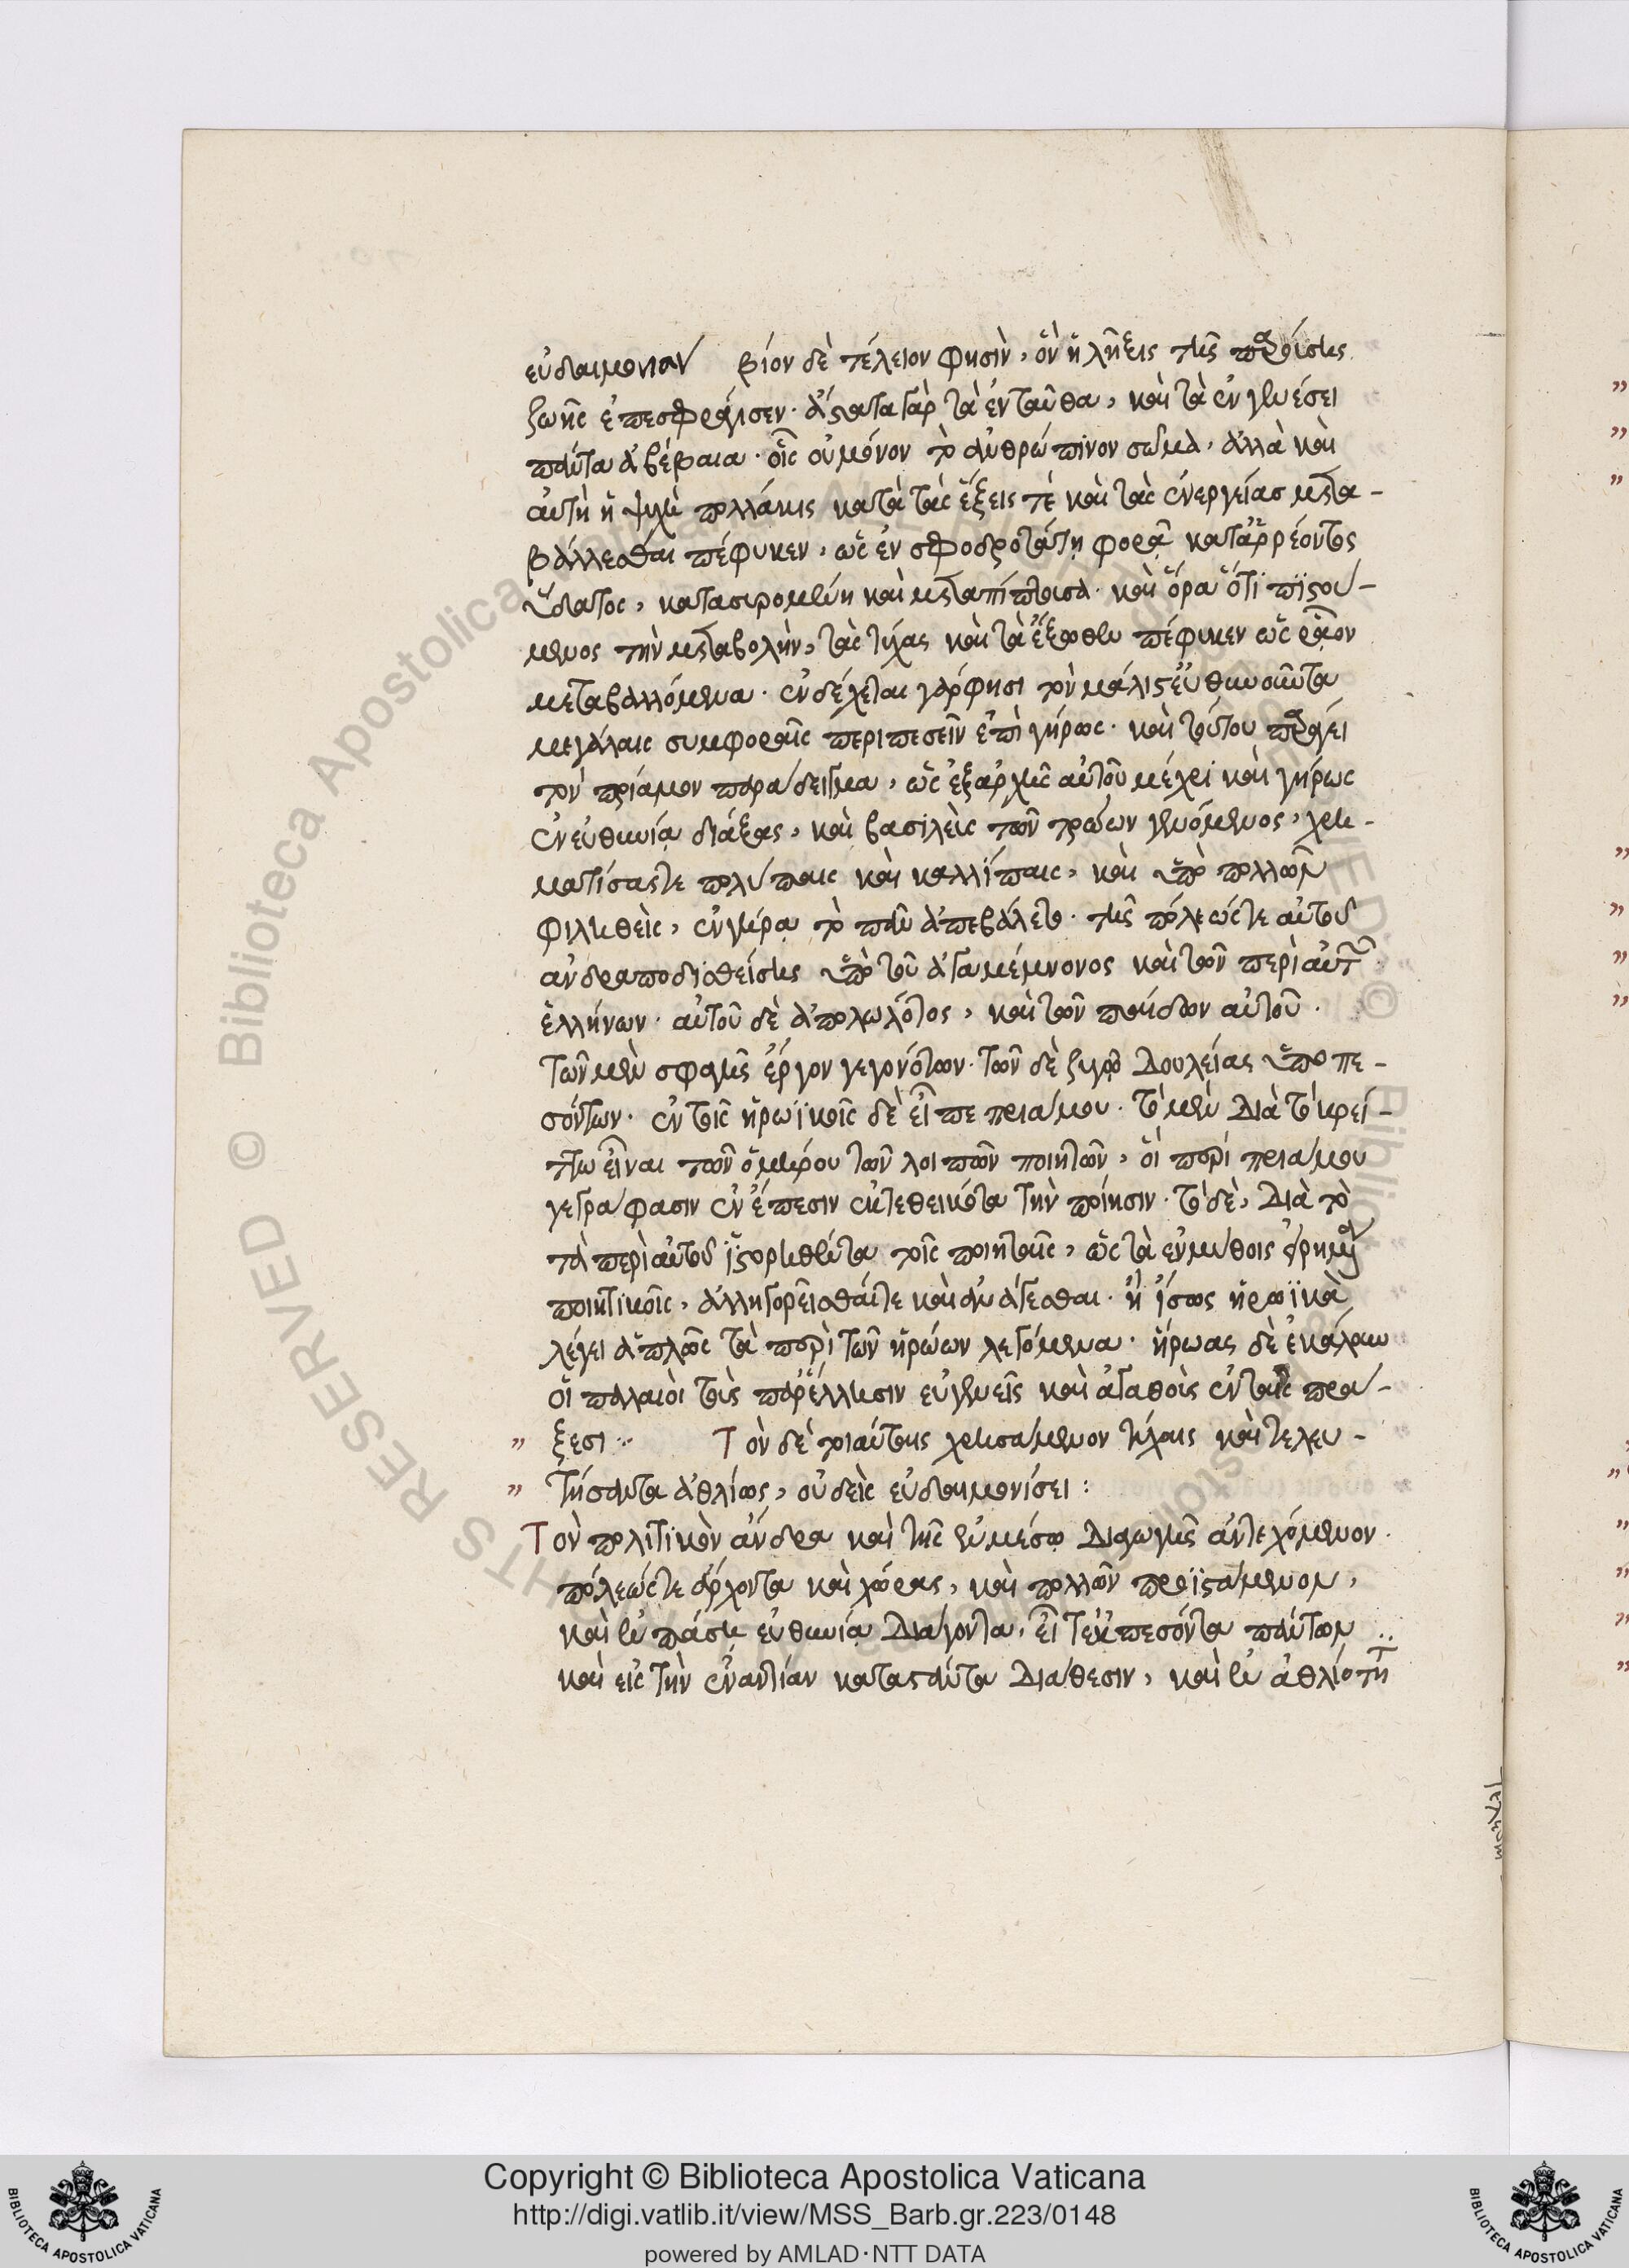 εὐδαιμονίαν βίον δὲ τέλειον φησὶν, ὃν ἡ λῆξις τῆς παρούσης
ζωῆς ἐπεσφράγισεν. ἄστατα γὰρ τὰ ἐνταῦθα, καὶ τὰ ἐν γενέσει
πάντα ἀβέβαια. οἷς οὐ μόνον τὸ ἀνθρώπινον σῶμα, ἀλλὰ καὶ
αὐτὴ ἡ ψυχὴ πολλάκις κατὰ τὰς ἕξεις τὲ καὶ τὰς ἐνεργείας μετα-
βάλλεσθαι πέφυκεν, ὡς ἐν σφοδροτάτῃ φορᾷ καταρρέοντος
ὕδατος, κατασυρομένη καὶ μεταπίπτουσα. καὶ ὅρα ὅτι πιστού-
μενος τὴν μεταβολὴν, τὰς τύχας καὶ τὰ ἔξωθεν πέφυκεν ὡς ρᾷον
μεταβαλλόμενα. ἐνδέχεται γάρ φησι τὸν μάλιστ' εὐθηνοῦντα
μεγάλαις συμφοραῖς περιπεσεῖν ἐπὶ γήρως. καὶ τούτου παράγει
τὸν πρίαμον παράδειγμα, ὡς ἐξαρχῆς αὐτοῦ μέχρι καὶ γήρως
ἐν εὐθηνίᾳ διάξας, καὶ βασιλεὺς τῶν τρώων γενόμενος, χρη-
ματίσας τε πολύπαις καὶ καλλίπαις, καὶ ὑπὸ πολλῶν
φιληθεὶς, ἐν γήρᾳ τὸ πᾶν ἀπεβάλετο. τῆς πόλεώς τε αὐτοῦ
ἀνδραποδισθείσης ὑπὸ τοῦ ἀγαμέμνονος καὶ τῶν περὶ αὐτὸν
ἑλλήνων. αὐτοῦ δὲ ἀπολωλότος, καὶ τῶν παίδων αὐτοῦ.
Τῶν μὲν σφαγῆς ἔργον γεγονότων. τῶν δὲ ζυγῷ δουλείας ὑποπε-
σόντων. ἐν τοῖς ἡρωϊκοῖς δὲ εἶπε πριάμου. τὸ μὲν διὰ τὸ κρεί-
ττω εἶναι τῶν ὁμήρου τῶν λοιπῶν ποιητῶν, οἳ περὶ πριάμου
γεγράφασιν ἐν ἔπεσιν ἐκτεθεικότα τὴν ποίησιν. τὸ δὲ, διὰ τὸ
τὰ περὶ αὐτοῦ ἱστορηθέντα τοῖς ποιηταῖς, ὡς τὰ ἐν μύθοις
ποιητικοῖς, ἀλληγορεῖσθαί τε καὶ ἀνάγεσθαι. ἢ ἴσως ἡρωϊκὰ
λέγει ἁπλῶς τὰ περὶ τῶν ἡρώων λεγόμενα. ἥρωας δὲ ἐκάλουν
οἱ παλαιοὶ τοὺς παρ' ἕλλησιν εὐγενεῖς καὶ ἀγαθοὺς ἐν ταῖς πρά-
" ξεσι .. Τὸν δὲ τοιαύταις χρησάμενον τύχαις καὶ τελευ-
" τήσαντα ἀθλίως, οὐδεὶς εὐδαιμονίσει :
Τὸν πολιτικὸν ἄνδρα καὶ τῆς ἐν μέσῳ διαγωγῆς ἀντεχόμενον.
πόλεώς τε ἄρχοντα καὶ χώρας, καὶ πολλῶν προϊστάμενον,
καὶ ἐν πάσῃ εὐθηνίᾳ διάγοντα, εἶτ' ἐκπεσόντα πάντων ..
καὶ εἰς τὴν ἐναντίαν καταστάντα διάθεσιν, καὶ ἐν ἀθλιότητι
Copyright © Biblioteca Apostolica Vaticana
http://digi.vatlib.it/view/MSS_Barb.gr.223/0148
powered by AMLAD·NTT DATA